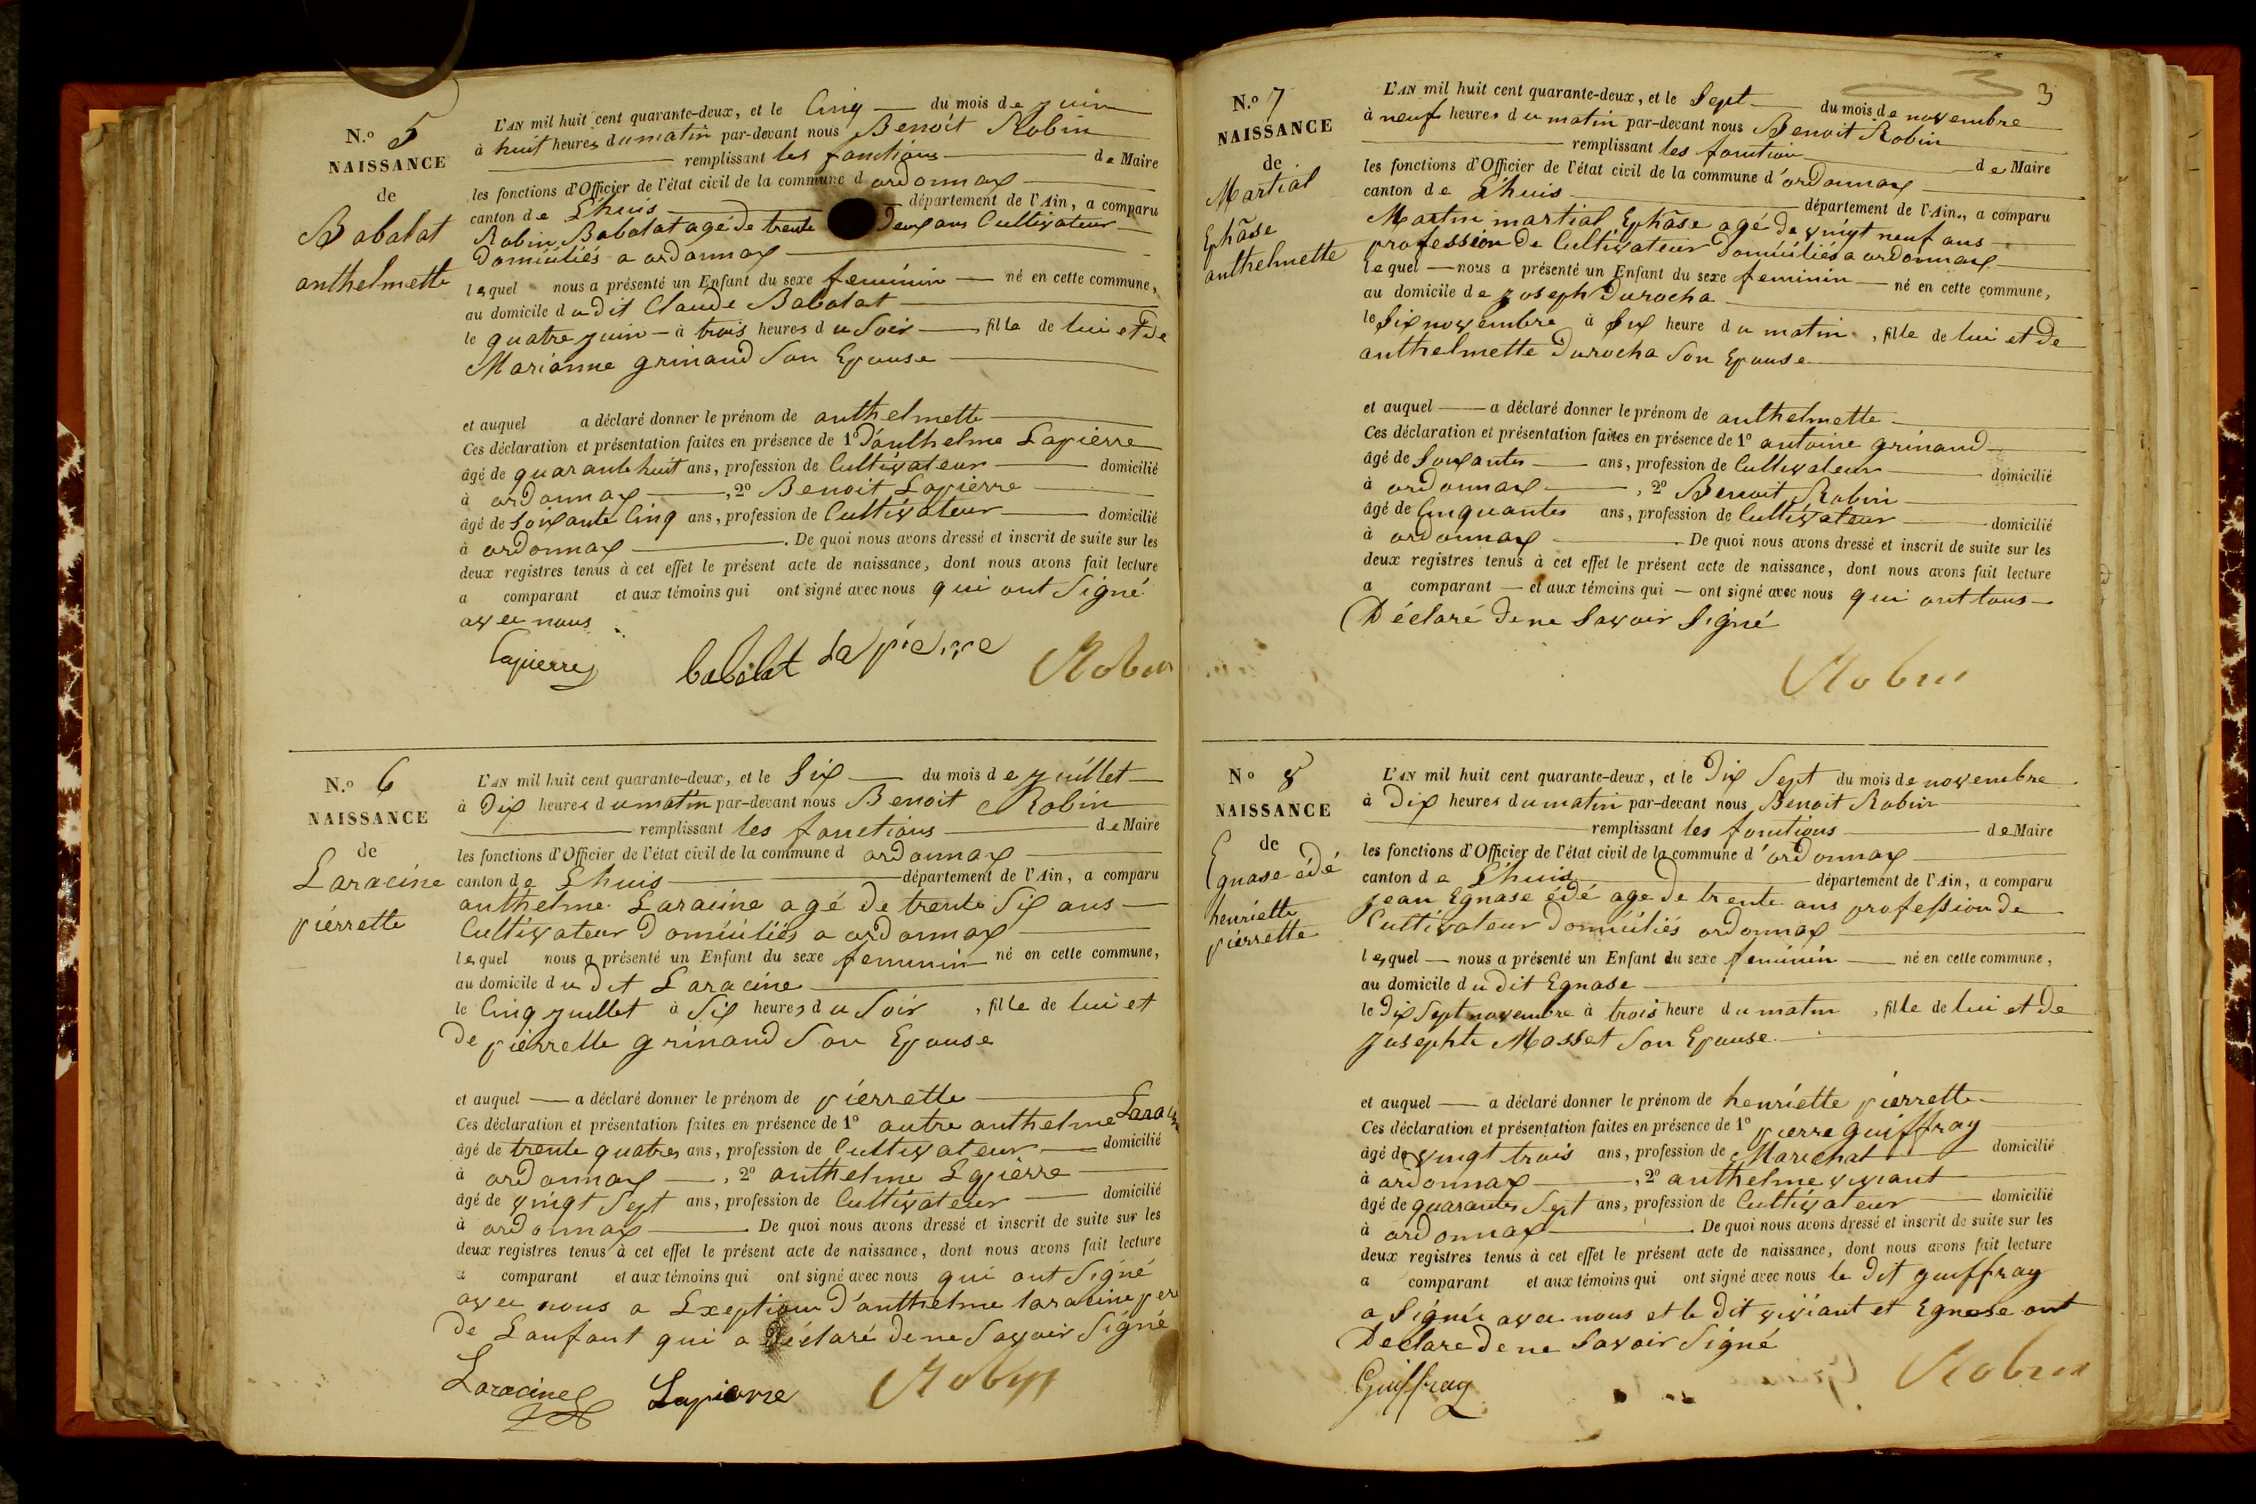 N.º 5
NAISSANCE
de
Babolat
anthelmette
L'AN mil huit cent quarante-deux, et le Cinq du mois de juin
à huit heures du matin par-devant nous Benoit Robin
remplissant les fonctions de Maire
les fonctions d'Officier de l'état civil de la commune d ordonnax
canton de L'huis département de l'Ain, a comparu
Robin Babolat agé de trente deux ans Cultivateur
Domiciliés a ordonnax
lequel nous a présenté un Enfant du sexe feminin né en cette commune,
au domicile dudit Claude Babolat
le quatre juin à trois heures du Soir fille de lui et De
Marianne grinand Son Epouse
et auquel a déclaré donner le prénom de anthelmette
Ces déclaration et présentation faites en présence de 1º D'anthelme Lapierre
âgé de quarante huit ans, profession de Cultivateur domicilié
à ordonnax, 2º Benoit Lapierre
âgé de Soixante Cinq ans, profession de Cultivateur domicilié
à ordonnax. De quoi nous avons dressé et inscrit de suite sur les
deux registres tenus à cet effet le présent acte de naissance, dont nous avons fait lecture
a comparant et aux témoins qui ont signé avec nous qui ont Signé
avec nous
Lapierre babolat Lapierre Robin
N.º 6
NAISSANCE
de
Laracine
pierrette
L'AN mil huit cent quarante-deux, et le Six du mois de juillet
à Dix heures du matin par-devant nous Benoit Robin
remplissant les fonctions de Maire
les fonctions d'Officier de l'état civil de la commune d ordonnax
canton de Lhuis département de l'Ain, a comparu
anthelme Laracine agé De trente Six ans
Cultivateur Domiciliés a ordonnax
lequel nous a présenté un Enfant du sexe feminin né en cette commune,
au domicile dudit Laracine
le Cinq juillet à Six heures du Soir, fille de lui et
De pierrette grinand Son Epouse
et auquel a déclaré donner le prénom de pierrette
Ces déclaration et présentation faites en présence de 1º autre anthelme Laracine
âgé de trente quatres ans, profession de Cultivateur domicilié
à ordonnax, 2º anthelme Lapierre
âgé de vingt Sept ans, profession de Cultivateur domicilié
à ordonnax De quoi nous avons dressé et inscrit de suite sur les
deux registres tenus à cet effet le présent acte de naissance, dont nous avons fait lecture
a comparant et aux témoins qui ont signé avec nous qui ont Signé
avec nous a Exeption D'anthelme laracine pere
De Lanfant qui a Déclaré De ne Savoir Signé
Laracine Lapierre Robin
3
N.º 7
NAISSANCE
de
Martial
Ephãse
anthelmette
L'AN mil huit cent quarante-deux, et le Sept du mois de novembre
à neuf heures du matin par-devant nous Benoit Robin
remplissant les fonction de Maire
les fonctions d'Officier de l'état civil de la commune d'ordonnax
canton de L'huis département de l'Ain., a comparu
Martin martial Ephãse agé de vingt neuf ans
profession De Cultivateur Domiciliés a ordonnax
lequel nous a présenté un Enfant du sexe feminin né en cette commune,
au domicile de joseph Durocha
le Six novembre à Six heure du matin, fille de lui et De
anthelmette Durocha Son Epouse
et auquel a déclaré donner le prénom de anthelmette
Ces déclaration et présentation faites en présence de 1º antoine grinand
âgé de Soixantes ans, profession de Cultivateur domicilié
à ordonnax, 2º Benoit Robin
âgé de Cinquantes ans, profession de Cultivateur domicilié
à ordonnax. De quoi nous avons dressé et inscrit de suite sur les
deux registres tenus à cet effet le présent acte de naissance, dont nous avons fait lecture
a comparant et aux témoins qui ont signé avec nous qui ont tous
Déclaré De ne Savoir Signé
Robin
Nº 8
NAISSANCE
de
Egnase édé
henriette
pierrette
L'AN mil huit cent quarante-deux, et le Dix Sept du mois de novembre
à Dix heures du matin par-devant nous Benoit Robin
remplissant les fonctions de Maire
les fonctions d'Officier de l'état civil de la commune d'ordonnax
canton de L'huis département de l'Ain, a comparu
jean Egnase édé age De trente ans profession De
Cultivateur Domiciliés ordonnax
lequel nous a présenté un Enfant du sexe feminin né en cette commune,
au domicile dudit Egnase
le Dix Sept novembre à trois heure du matin, fille de lui et De
josephte Mosset Son Epouse
et auquel a déclaré donner le prénom de henriette pierrette
Ces déclaration et présentation faites en présence de 1º pierre guiffray
âgé de vingt trois ans, profession de Marechal domicilié
à ordonnax, 2º anthelme viviant
âgé de quarantes Sept ans, profession de Cultivateur domicilié
à ordonnax. De quoi nous avons dressé et inscrit de suite sur les
deux registres tenus à cet effet le présent acte de naissance, dont nous avons fait lecture
a comparant et aux témoins qui ont signé avec nous le Dit guiffray
a Signée avec nous et le Dit viviant et Egnase ont
Declare De ne Savoir Signé
Guiffray Robin